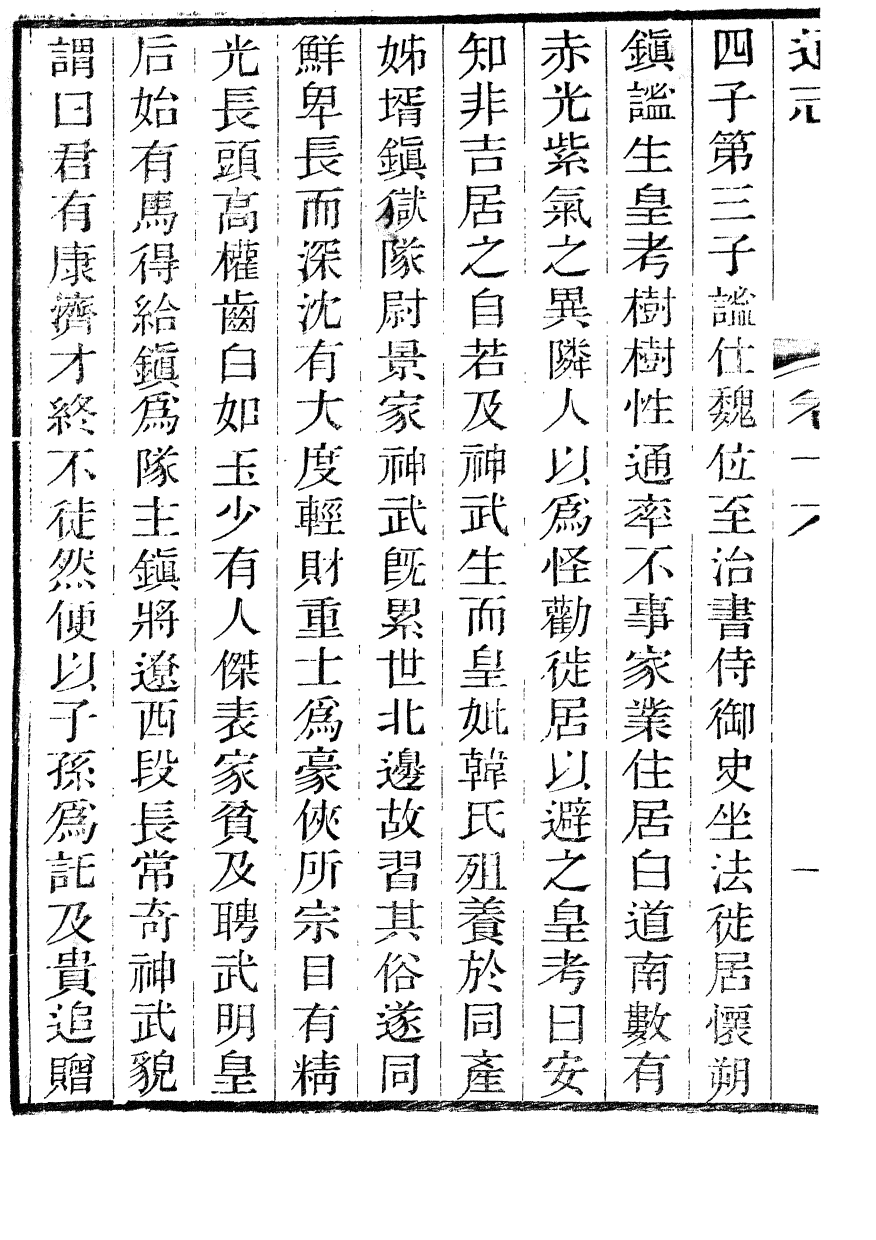 四子第三子謐仕魏位至治書侍御史坐法徙居懷朔
鎭謐生皇考樹樹性通率不事家業住居白道南數有
赤光紫氣之異隣人以爲怪勸徙居以避之皇考曰安
知非吉居之自若及神武生而皇妣韓氏殂養於同產
姊壻鎭獄隊尉景家神武旣累世北邊故習其俗遂同
鮮卑長而深沈有大度輕財重士爲豪俠所宗目有精
光長頭高權齒白如玉少有人傑表家貧及聘武明皇
后始有馬得給鎭爲隊主鎭將遼西段長常奇神武貌
謂曰君有康濟才終不徒然便以子孫爲託及貴追贈